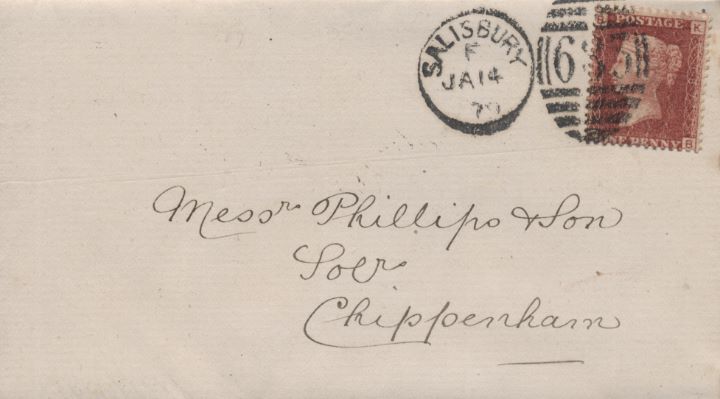 SALISBURY
F
JA 14
79
B K
POSTAGE
ONE PENNY
B
Messrs Phillips & Son
Solrs
Chippenham